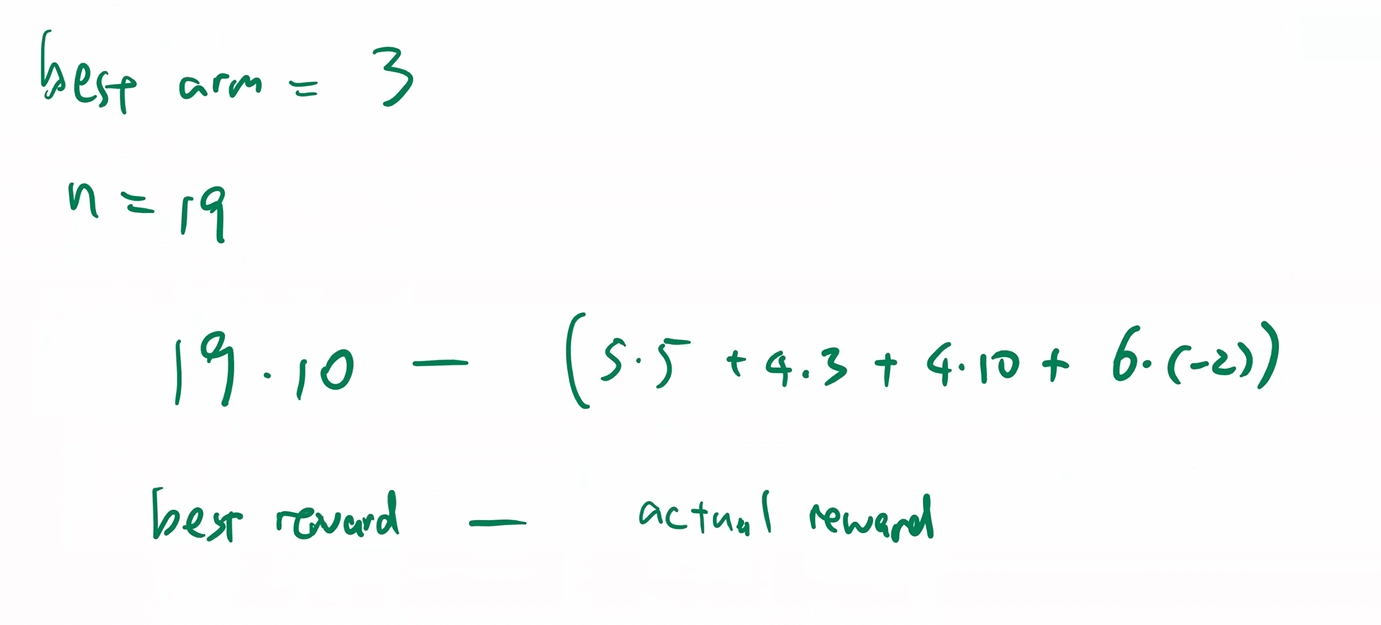 best arm = 3
n = 19
19 · 10 — (5 · 5 + 4 . 3 + 4 · 10 + 6 · (-2))
best reward — actual reward